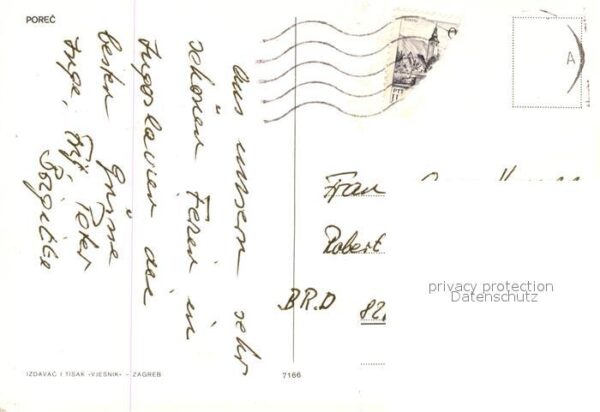 POREČ
Aus unsern sehr
schönen Ferien in
Jugoslavien die
besten Grüsse
Inge, Peter
Brigitte
Frau
Robert
BR.D 82
privacy protection
Datenschutz
IZDAVAČ I TISAK «VJESNIK» - ZAGREB
7166
A